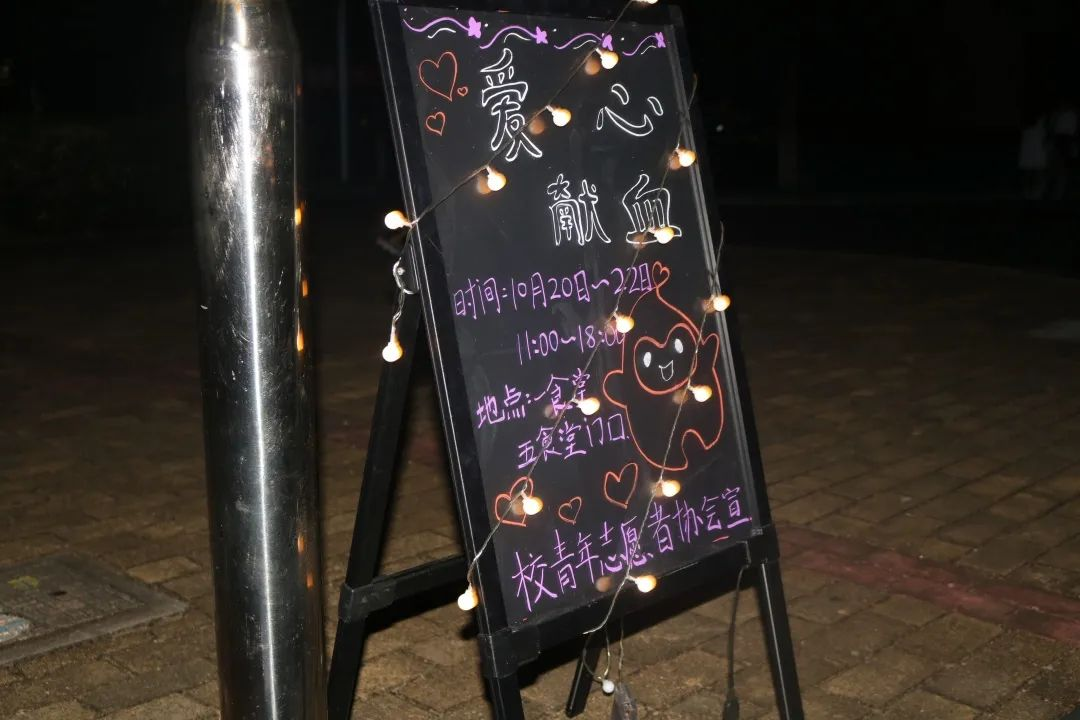 爱心
献血
时间:10月20日~22日
11:00~18:00
地点:一食堂
五食堂门口
校青年志愿者协会宣